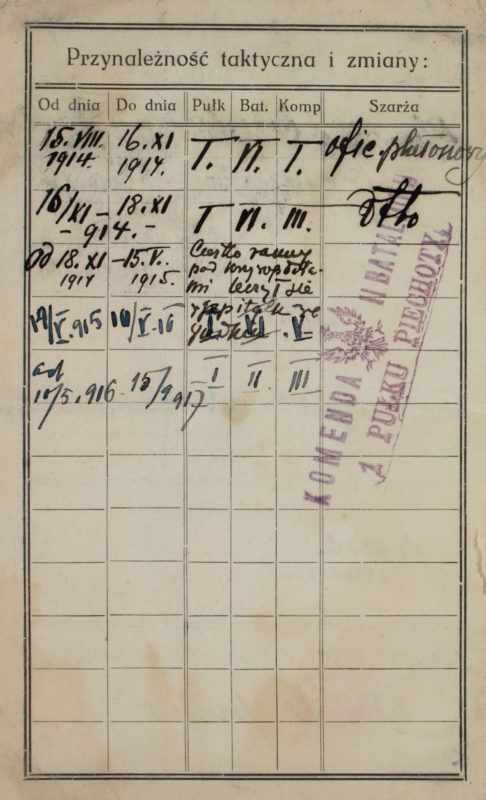 Przynależność taktyczna i zmiany:
Od dnia Do dnia Pułk Bat. Komp Szarża
15. VIII. 1914. 16. XI 1914. I. VI. I. ofic. plutonowy
16/XI - 914. - 18. XI I VI. III.
Od 18. XI 1914 - 15. V. 1915. Ciężko ranny
pod
mi leczył się
szpitalu
19/V. 915 10/V. 16 I VI . V
od 10/5. 916 15/9 917 I II III
KOMENDA II BATALIONU
1 PUŁKU PIECHOTY.